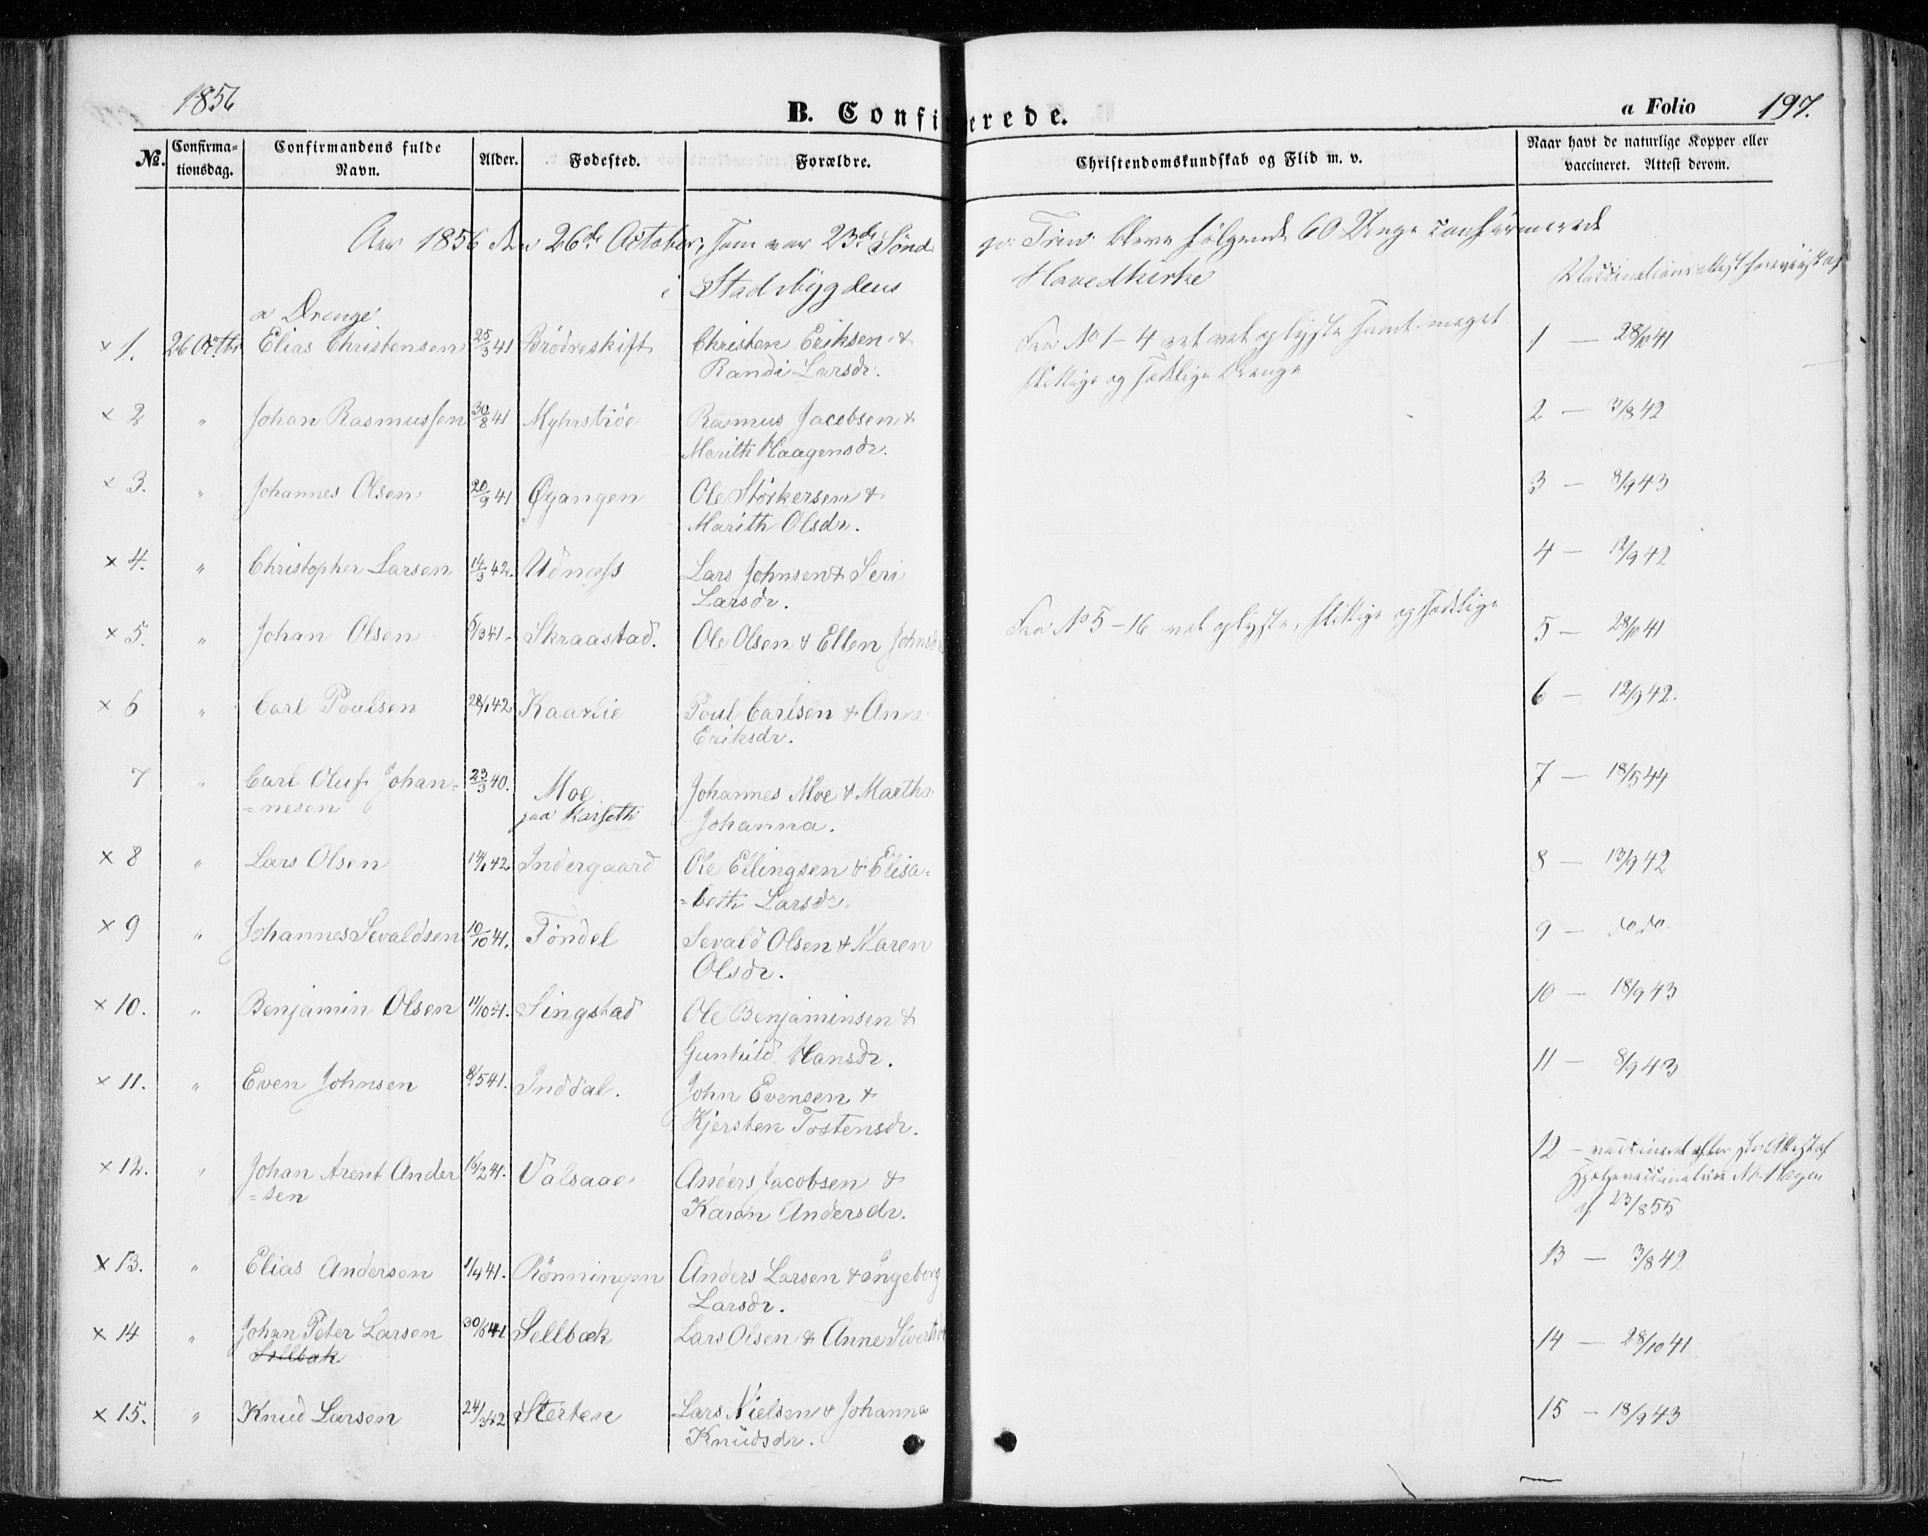 1856
B. Confirmerede.
a Folio 197.
No.
Confirma-
tionsdag.
Confirmandens fulde
Navn.
Alder.
Fødested.
Forældre.
Christendomskundskab og Flid m. v.
Naar havt de naturlige Kopper eller
vaccineret. Attest derom.
Aar 1856 den 26de October, som var 23de Sønd
ge Trin. bleve følgende 60 Unge confirmerede
i Stadsbygdens
Hovedkirke
a Drenge
× 1. 26 Octbr Elias Christensen 25/3 41 Brödreskift Christen Eriksen &
Randi Larsdr.
Fra No 1-4 vel oplyste samt meget
flittige og sædelige Drenge
1 — 28/10 41
× 2 " Johan Rasmussen 30/8 41 Myhrstrøe Rasmus Jacobsen &
Marith Haagensdr.
2 — 3/8 42
× 3. " Johannes Olsen 20/9 41 Øyangen Ole Störkersen &
Marith Olsdr.
3 — 8/9 43
× 4. " Christopher Larsen 14/3 42. Udnæss Lars Johnsen & Seri
Larsdr.
4 — 12/9 42
× 5. " Johan Olsen 6/3 41 Skraastad. Ole Olsen & Ellen Johnsdr
Fra No 5-16 vel oplyste, flittige og sædelige
5 — 28/10 41
× 6 " Carl Poulsen 28/1 42 Kaarlie Poul Carlsen & Anne
Eriksdr.
6 — 12/9 42.
7 " Carl Oluf Johan-
=nesen 23/3 40. Moe
paa Karseth Johannes Moe & Martha
Johanna.
7 — 18/5 44
× 8 " Lars Olsen 14/1 42 Indergaard Ole Ellingsen & Elisa=
=beth Larsdr.
8 — 13/9 42
× 9 " Johannes Sevaldsen 10/10 41. Töndel Sevald Olsen & Maren
Olsdr.
9 — do do.
× 10. " Benjamin Olsen 11/10 41. Singstad Ole Benjaminsen &
Gunhild Hansdr.
10 — 18/9 43
× 11. " Even Johnsen 8/5 41. Inddal. John Evensen &
Kjersten Tostensdr.
11 — 8/9 43
× 12. " Johan Arent Ander
=sen 16/2 41. Valsaae Anders Jacobsen &
Karen Andersdr.
12 — vaccineret efter Attest af
Hagen
af 23/8 55
× 13. " Elias Andersen 1/4 41. Rönningen Anders Larsen & Ingeborg
Larsdr.
13 — 3/8 42
× 14 " Johan Peter Larsen 30/6 41 Sellbæk Lars Olsen & Anne Sivertsdr
Sellbæk
14 — 28/10 41
× 15. " Knud Larsen 24/3 42 Sterten Lars Nielsen & Johanna
Knudsdr.
15 — 18/9 43